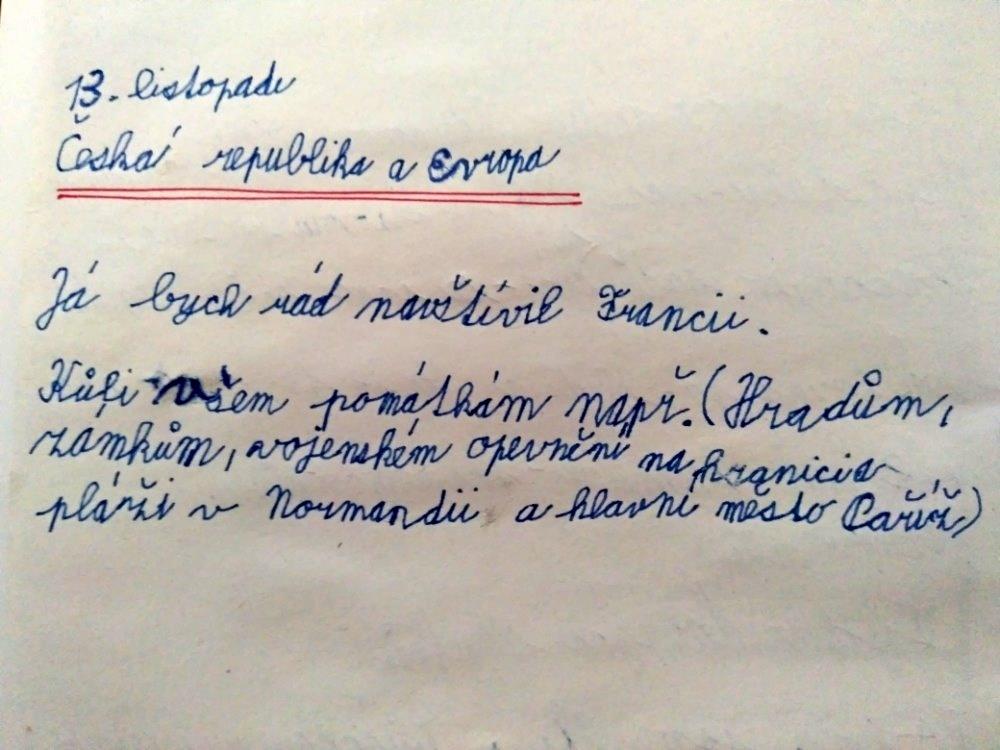 13. listopadu
Česká republika a Evropa
Já bych rád navštívil Francii.
Kůli všem pomátkám např. (Hradům,
zámkům, vojenském opevnění na hranicia
pláži v Normandii a hlavní město Paříž)